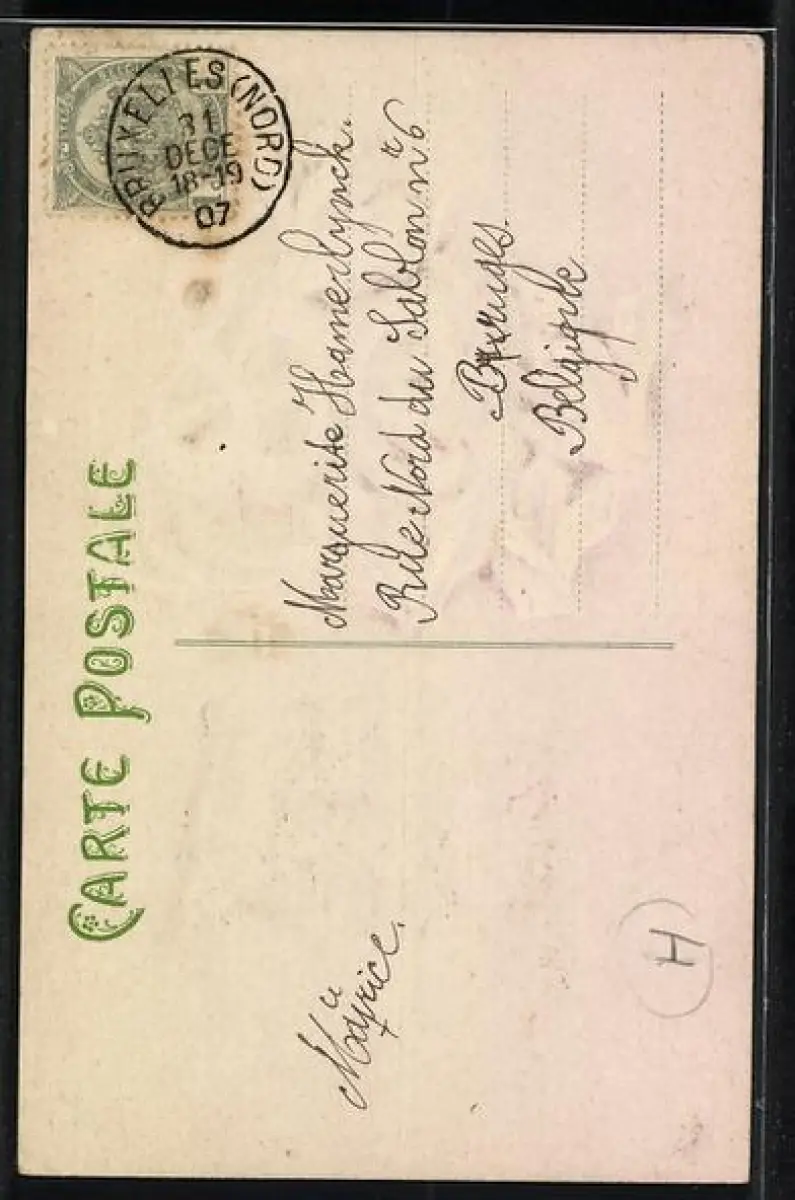 CARTE POSTALE
BRUXELLES (NORD)
31
DECE
18-19
07
Marguerite Hamerlynck.
Rue Nord du Sablon nr 6
Bruges.
Belgique
Maurice.
H